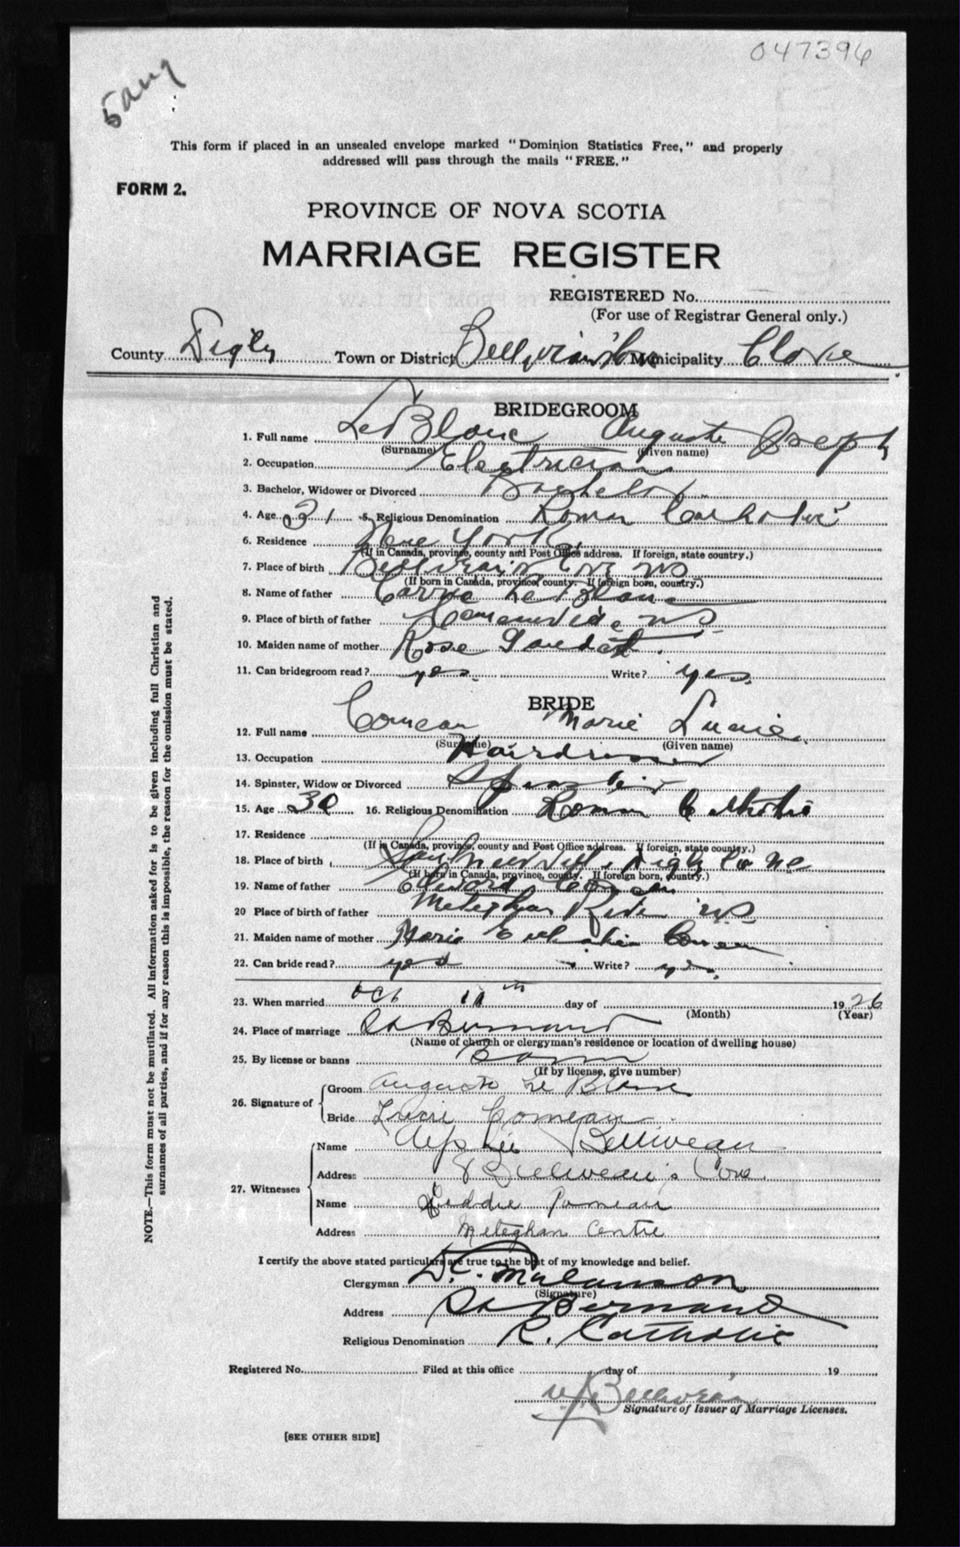 047396
5 aug
This form if placed in an unsealed envelope marked "Dominion Statistics Free," and properly
addressed will pass through the mails "FREE."
FORM 2.
PROVINCE OF NOVA SCOTIA
MARRIAGE REGISTER
REGISTERED No.
(For use of Registrar General only.)
County Digby Town or District Municipality Clare
BRIDEGROOM
1. Full name LeBlanc Auguste Joseph
(Surname) (Given name)
2. Occupation Electrician
3. Bachelor, Widower or Divorced Bachelor
4. Age 31 5. Religious Denomination Roman Catholic
6. Residence New York
(If in Canada, province, county and Post Office address. If foreign, state country.)
7. Place of birth Cove NS
(If born in Canada, province, county. If foreign born, country.)
8. Name of father LeBlanc
9. Place of birth of father NS
10. Maiden name of mother Rose Gaudet
11. Can bridegroom read? yes Write? yes
BRIDE
12. Full name Comeau Marie Lucie
(Surname) (Given name)
13. Occupation Hairdresser
14. Spinster, Widow or Divorced Spinster
15. Age 30 16. Religious Denomination Roman Catholic
17. Residence
(If in Canada, province, county and Post Office address. If foreign, state country.)
18. Place of birth Saulnierville Digby Co
(If born in Canada, province, county. If foreign born, country.)
19. Name of father Edward Comeau
20 Place of birth of father Meteghan River NS
21. Maiden name of mother Marie Comeau
22. Can bride read? yes Write? yes
23. When married Oct 11th day of 1926
(Month) (Year)
24. Place of marriage St Bernard
(Name of church or clergyman's residence or location of dwelling house)
25. By license or banns Bann
(If by license, give number)
26. Signature of Groom Auguste Le Blanc
Bride Lucie Comeau
27. Witnesses
Name Belliveau
Address Belliveau's Cove
Name Comeau
Address Meteghan Centre
I certify the above stated particulars are true to the best of my knowledge and belief.
Clergyman D. C. Malanson
(Signature)
Address St Bernard
Religious Denomination R. Catholic
Registered No. Filed at this office day of 19
Belliveau
Signature of Issuer of Marriage Licenses.
[SEE OTHER SIDE]
NOTE.—This form must not be mutilated. All information asked for is to be given including full Christian and
surnames of all parties, and if for any reason this is impossible, the reason for the omission must be stated.